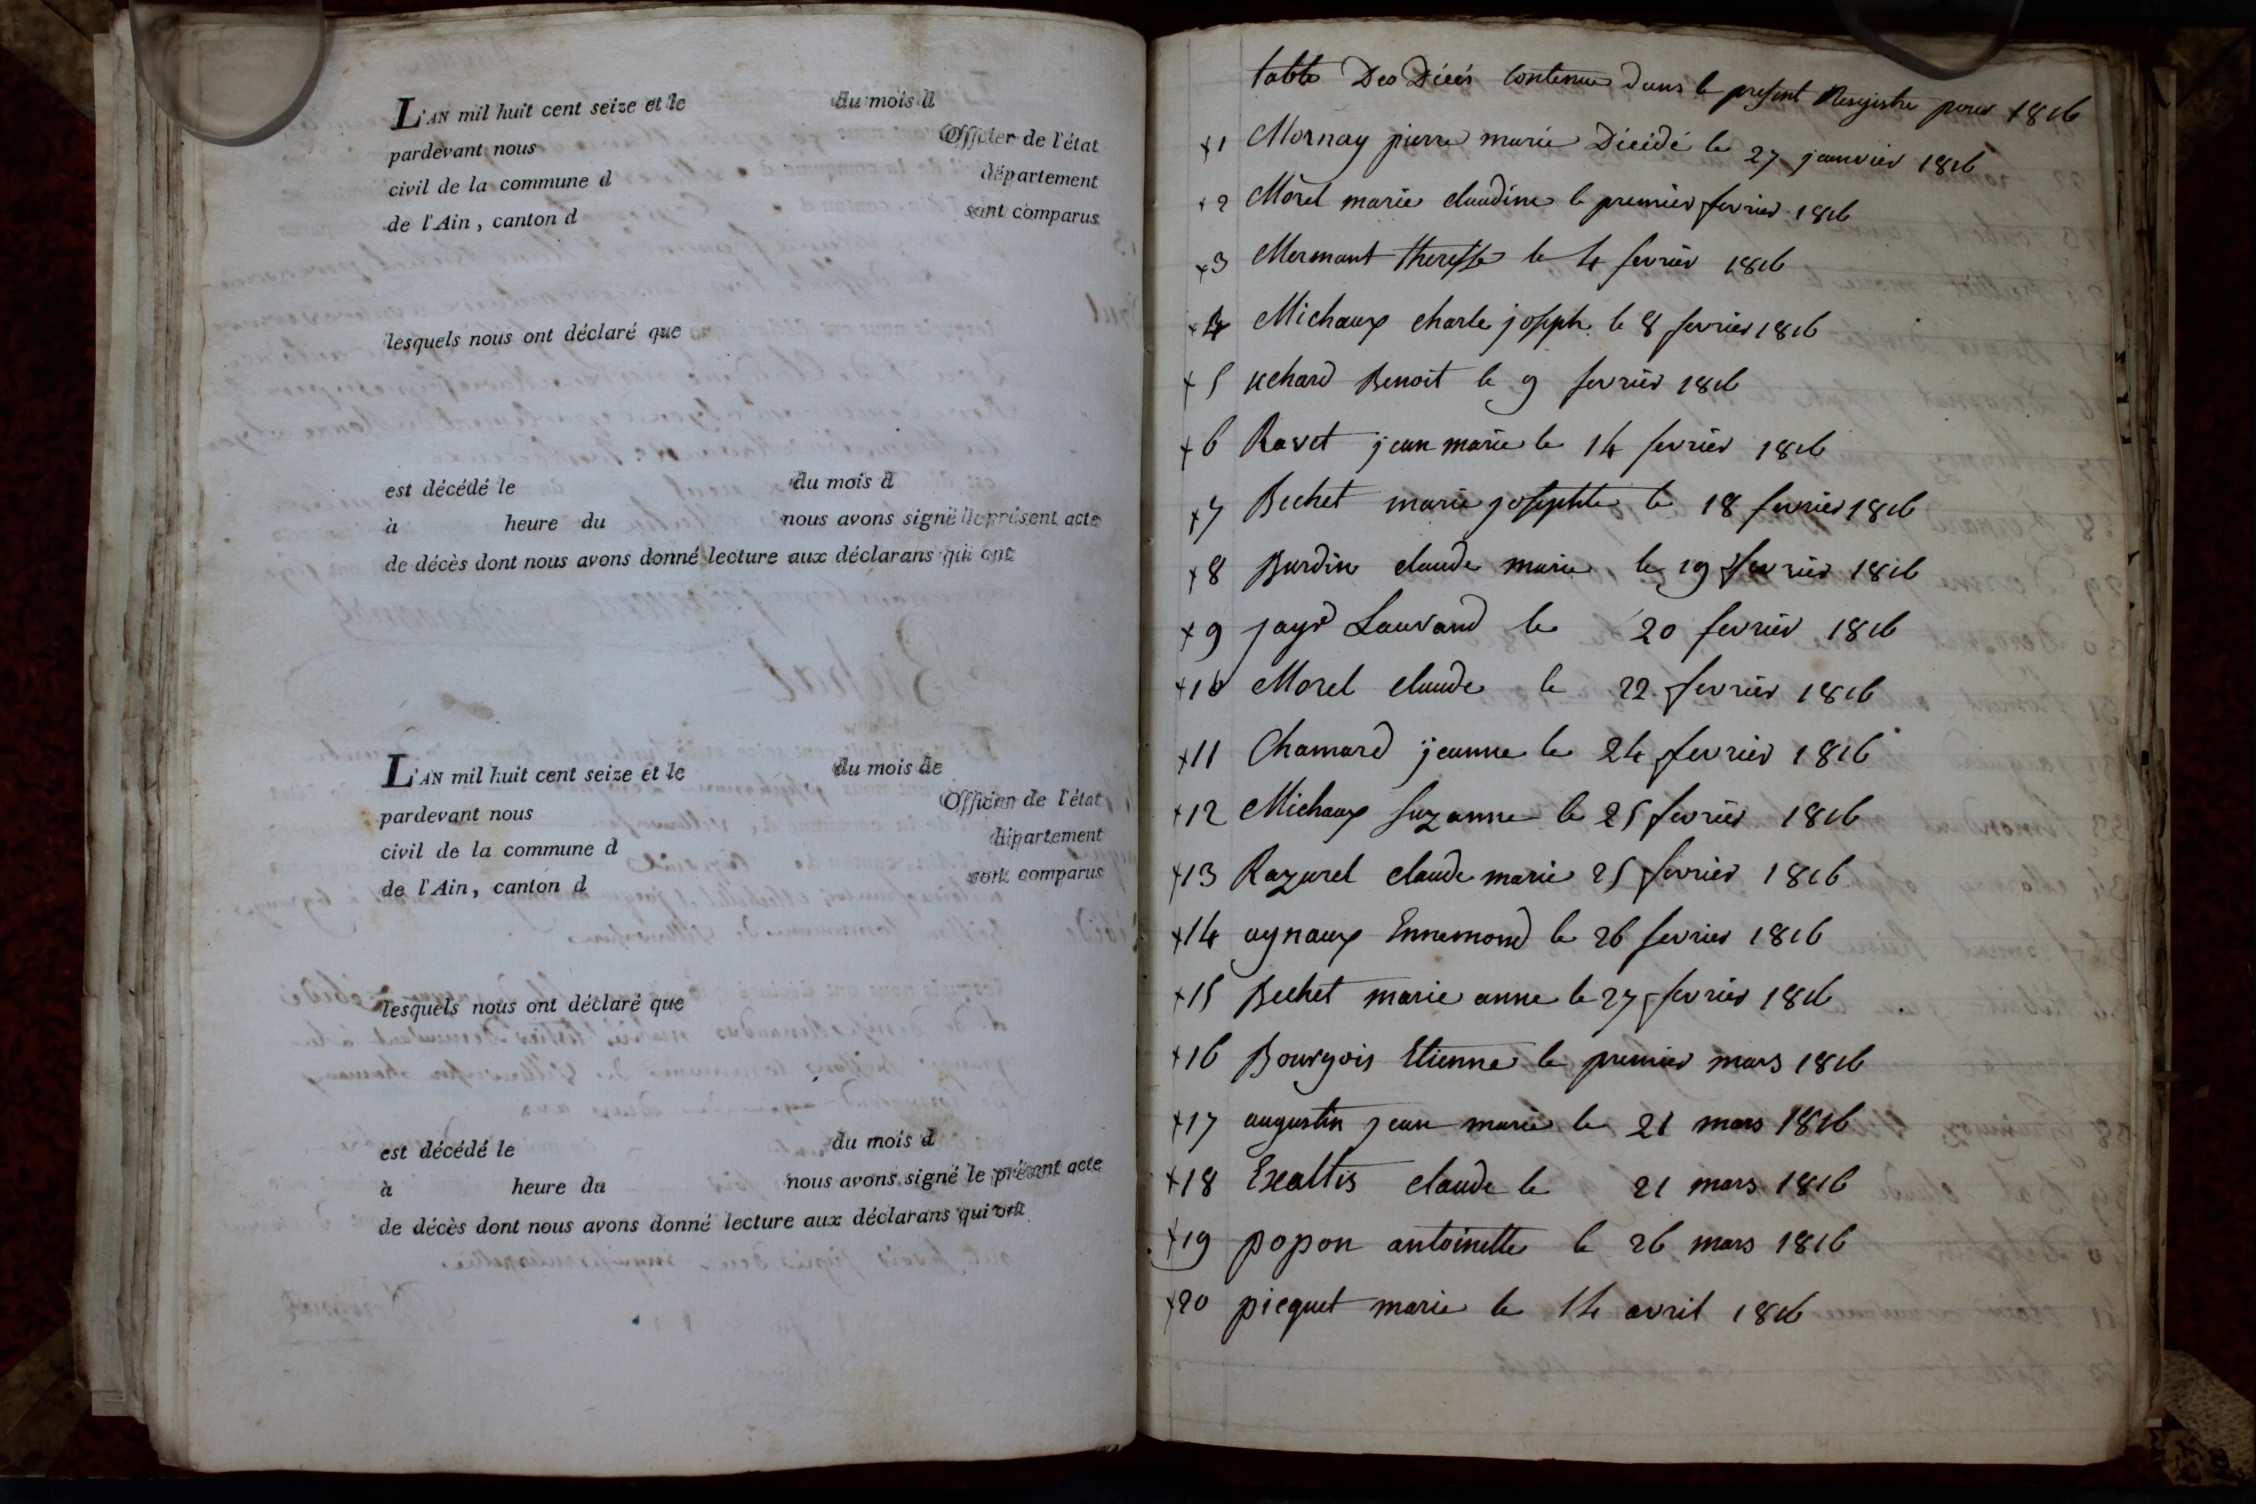 L'AN mil huit cent seize et le du mois d
pardevant nous Officier de l'état
civil de la commune d département
de l'Ain, canton d sont comparus
lesquels nous ont déclaré que
est décédé le du mois d
à heure du nous avons signé le présent acte
de décès dont nous avons donné lecture aux déclarans qui ont
L'AN mil huit cent seize et le du mois de
pardevant nous Officier de l'état
civil de la commune d département
de l'Ain, canton d sont comparus
lesquels nous ont déclaré que
est décédé le du mois d
à heure du nous avons signé le présent acte
de décès dont nous avons donné lecture aux déclarans qui ont
table Des Décés contenue dans le présent Registre pour 1816
x1 Mornay pierre marie Décédé le 27 janvier 1816
x2 Morel marie claudine le premier fevrier 1816
x3 Mermant theresse le 4 fevrier 1816
x4 Michaux charle joseph le 8 fevrier 1816
x5 uchard Benoit le 9 fevrier 1816
x6 Ravet jean marie le 14 fevrier 1816
x7 Bechet marie josephte le 18 fevrier 1816
x8 Burdin claude marie le 19 fevrier 1816
x9 jayr Laurand le 20 fevrier 1816
x10 Morel claude le 22 fevrier 1816
x11 Chamard jeanne le 24 fevrier 1816
x12 Michaux suzanne le 25 fevrier 1816
x13 Razurel claude marie 25 fevrier 1816
x14 aynaux Ennemond le 26 fevrier 1816
x15 Bechet marie anne le 27 fevrier 1816
x16 Bourgois Etienne le premier mars 1816
x17 augustin jean marie le 21 mars 1816
x18 Exaltis claude le 21 mars 1816
x19 popon antoinette le 26 mars 1816
x20 picquet marie le 14 avril 1816